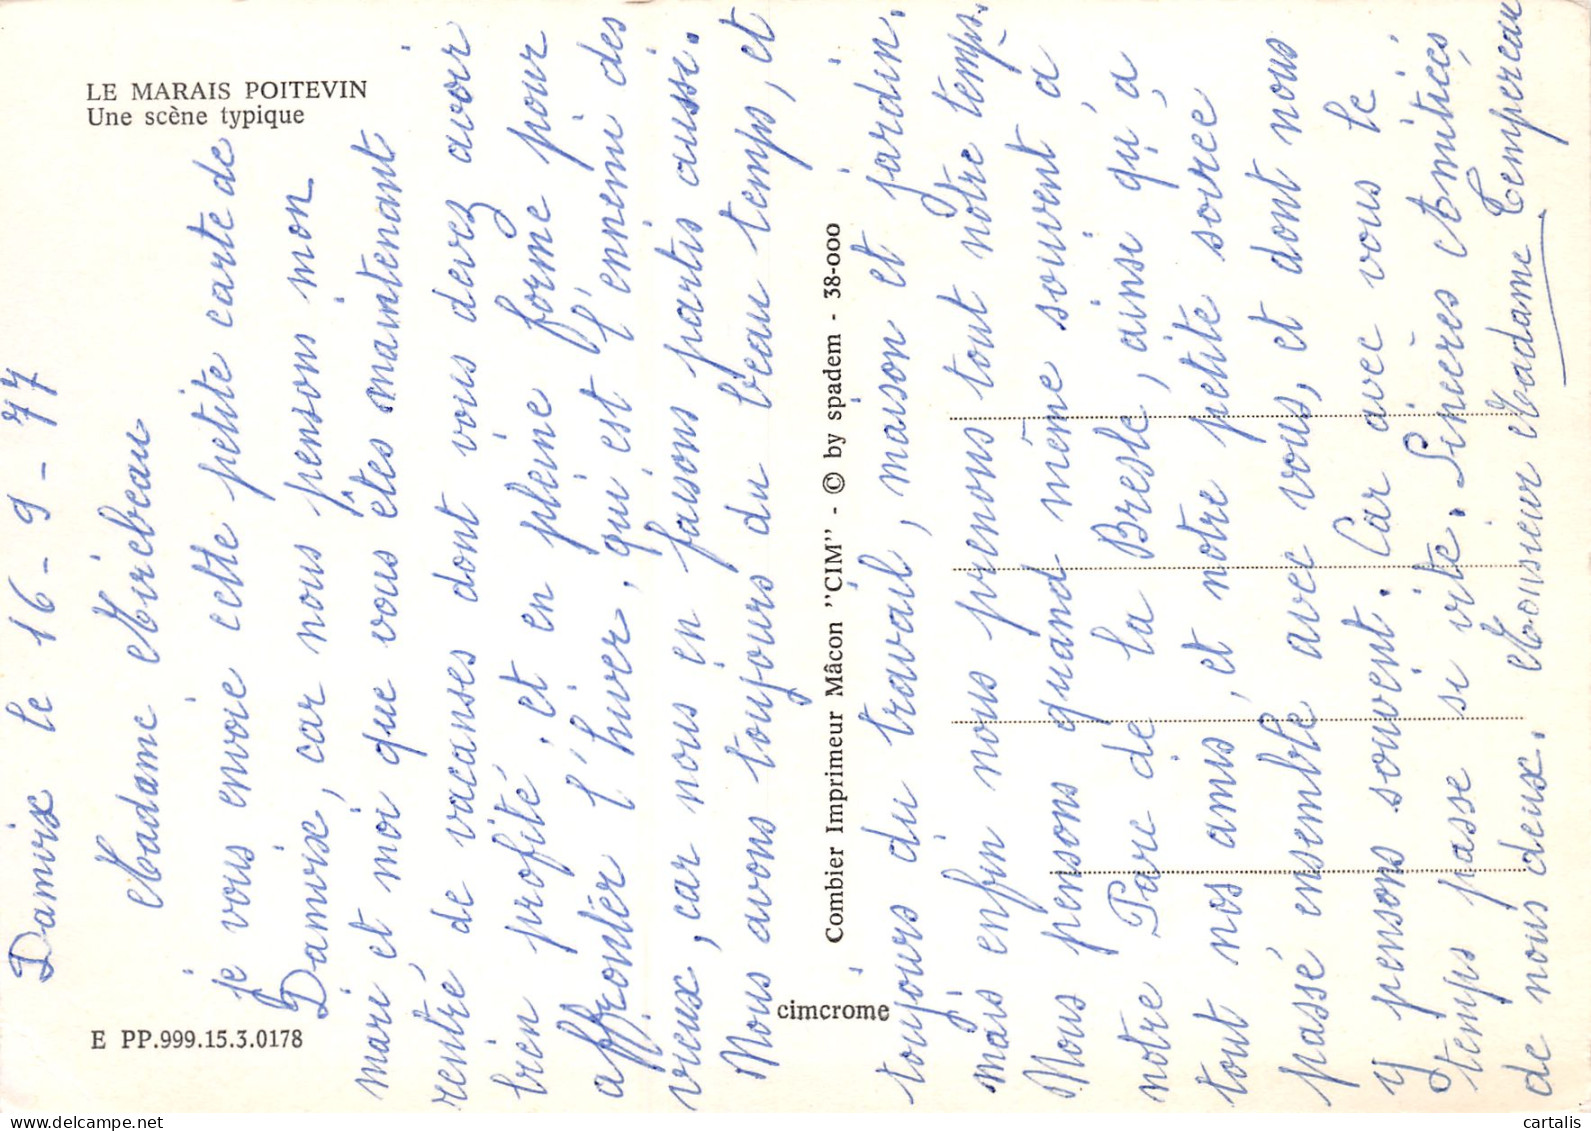 LE MARAIS POITEVIN
Une scène typique
E PP.999.15.3.0178
Combier Imprimeur Mâcon "CIM" - © by spadem - 38-000
cimcrome
Damvix le 16-9-77
Madame Mirebeau
je vous envoie cette petite carte de
Damvix, car nous pensons mon
mari et moi que vous êtes maintenant
rentré de vacanses dont vous devez avoir
bien profité, et en pleine forme pour
affrontér l'hiver, qui est l'ennemi des
vieux, car nous en faisons partis aussi.
Nous avons toujours du beau temps, et
toujours du travail, maison et jardin.
mais enfin nous prenons tout nôtre temps.
Nous pensons quand même souvent à
notre Parc de la Bresle, ainsi qu'à
tout nos amis, et notre petite soirée
passé ensemble avec vous, et dont nous
y pensons souvent. Car avec vous le
temps passe si vite. Sincères Amitiées
de nous deux. Monsieur Madame Tempereau
cartalis.com